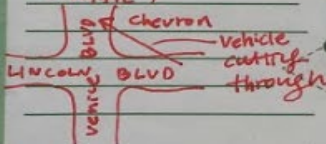 Chevron
BLVD
vehicle
cutting
through
LINCOLN BLVD
venice